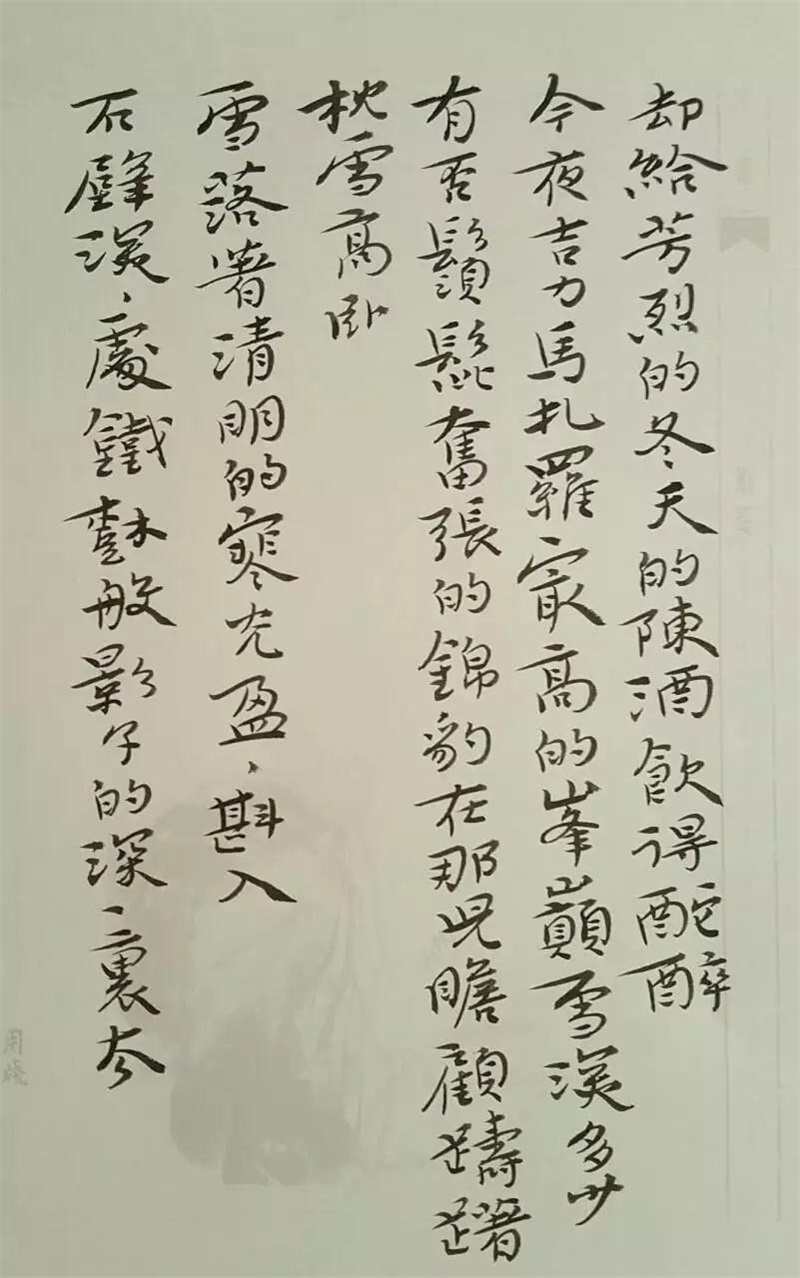 却給芳烈的冬天的陳酒飲得酡醉
今夜吉力馬扎羅最高的峯巔雪深多少
有否鬚髭奮張的錦豹在那兒瞻顧躊躇
枕雪高卧
雪落著清明的寒光盈々斟入
石壁深々處鐵樹般影子的深々裏去